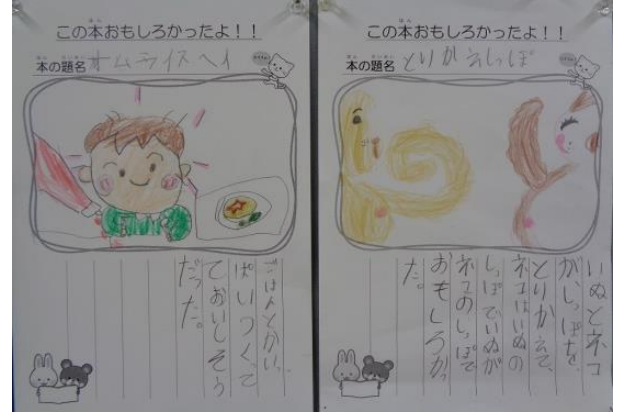 この本おもしろかったよ！！
本の題名 オムライスヘイ
ごはんとかいっ
ぱいつくって
ておいしそう
だった。
この本おもしろかったよ！！
本の題名 とりかえっしっぽ
いぬとネコ
が、しっぽを、
とりかえて、
ネコはいぬの
しっぽでいぬが
ネコのしっぽで
おもしろかっ
た。